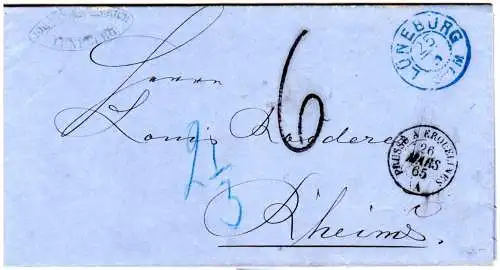 LÜNEBURG
Herrn
6
Louis Roederer
PRUSSE A ERQUELINES
26
MARS
65
A
2 1/3
Rheims